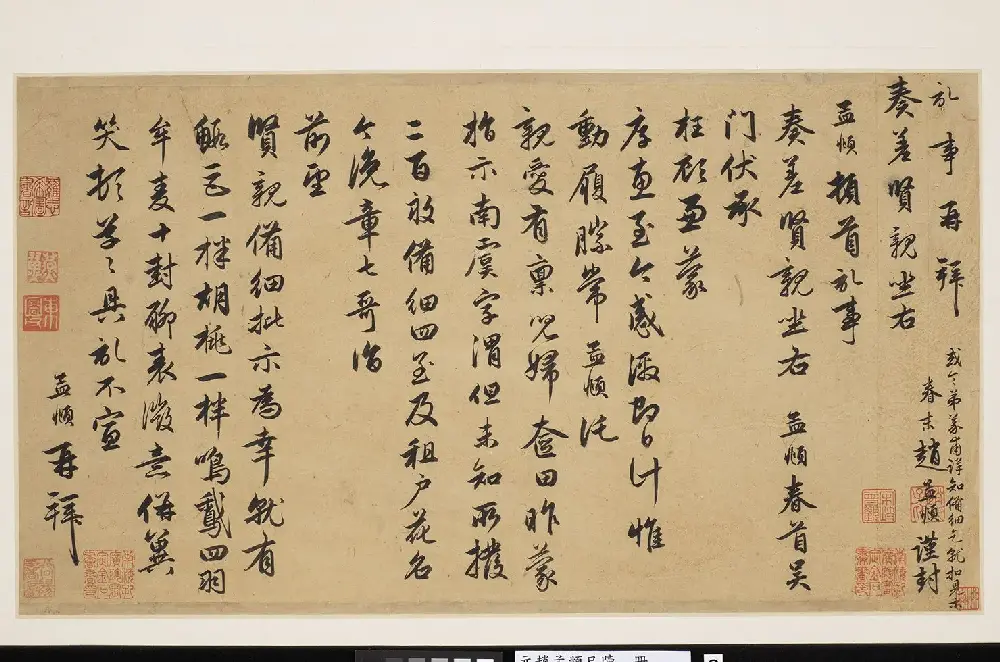 記事再拜
奏差賢親坐右
趙孟頫謹封
孟頫頓首記事
奏差賢親坐右 孟頫春首吳
門伏承
枉顧重蒙
序惠至今感激即日計惟
動履勝常孟頫託
親愛有稟兒婦奩田昨蒙
指示南虞字渭但未知所撥
二百畝備細四至及租戶花名
今浼章七哥詣
前望
賢親備細批示為幸就有
一拌胡桃一拌鳴鵝四羽
牟麦十封聊表微意併冀
笑頓草〻具記不宣
孟頫再拜